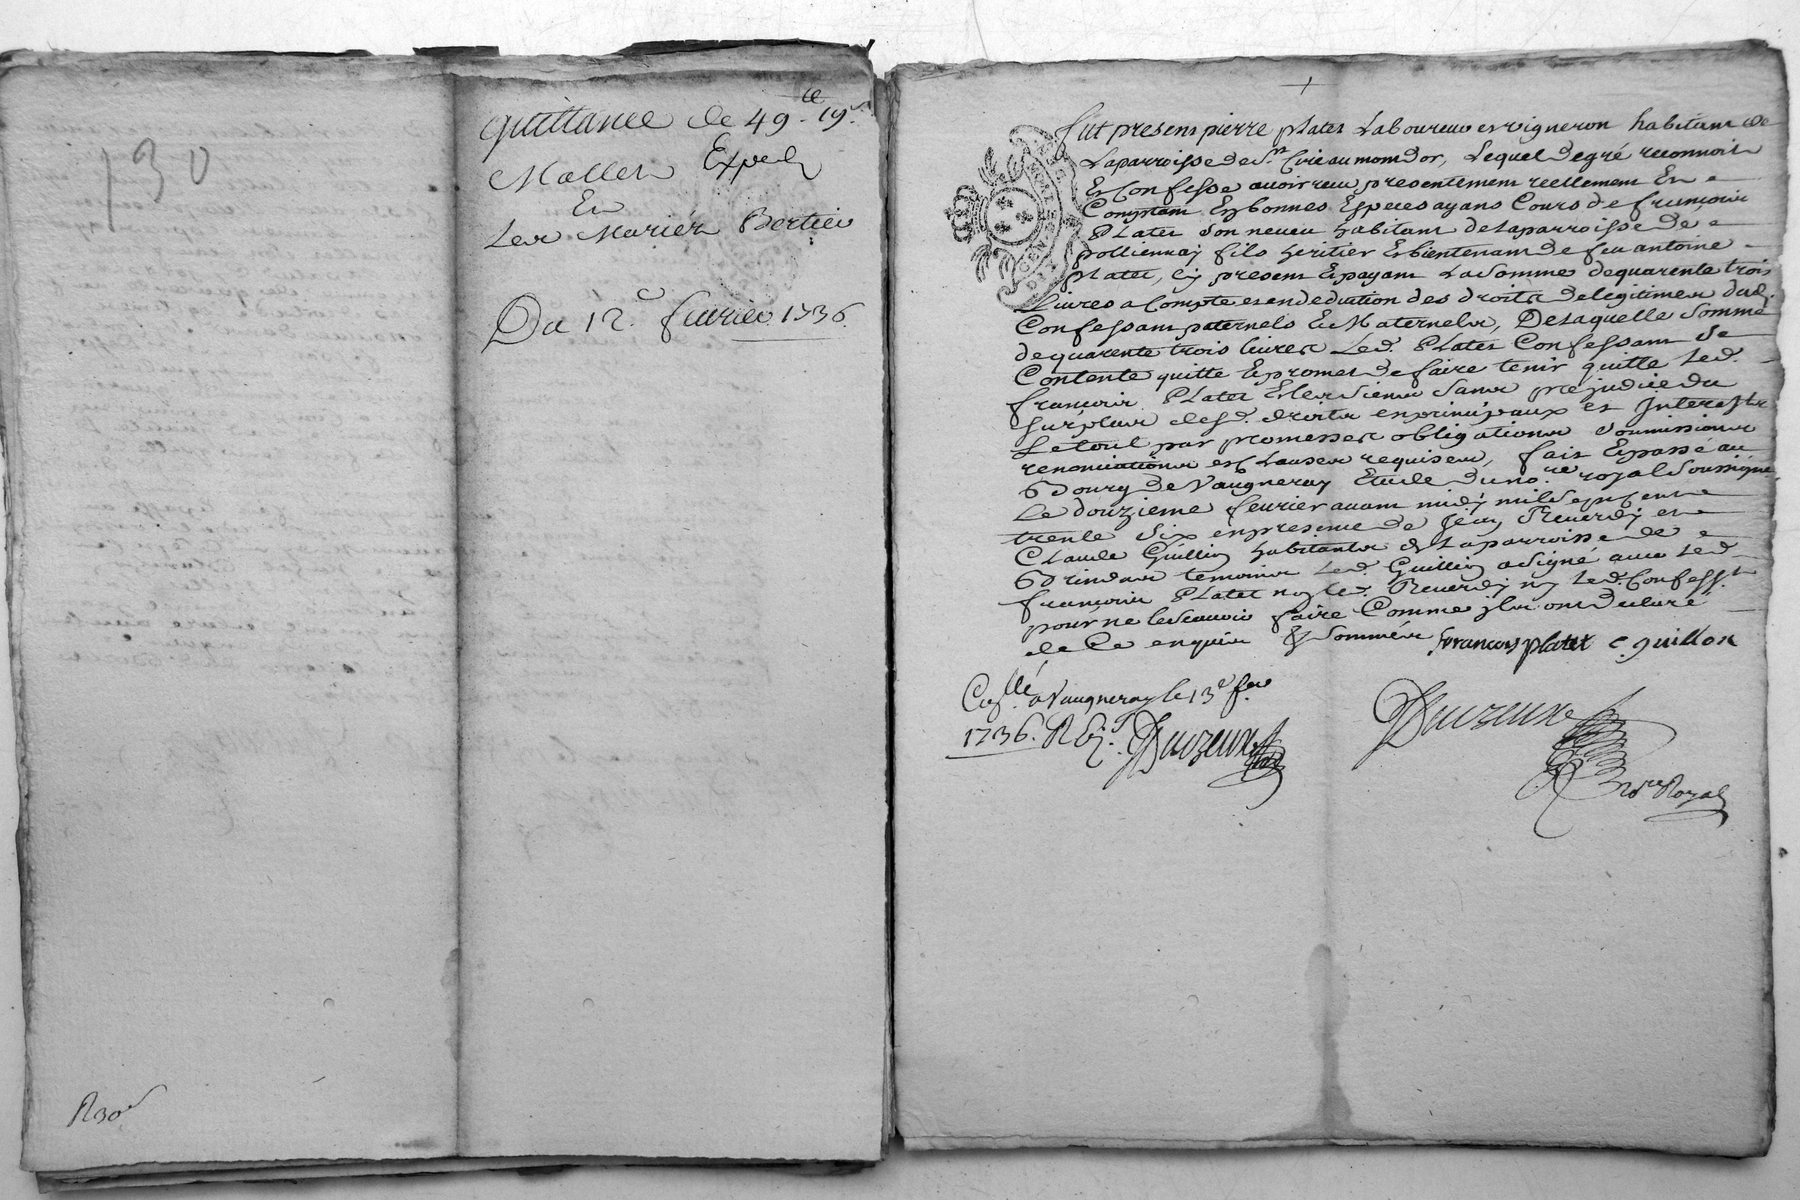 quittance de 49.ll 19.s
Mallet Exped
Et
Les Mariés Bertier
Du 12.e fevrier 1736.
130
R 30s
fut present pierre platet Laboureur et vigneron habitant de
La parroisse de St. Cire au mom dor, Lequel de gré reconnoit
Et Confesse avoir reçu presentement reellement Et
Comptam En bonnes Especes ayans Cours de françois
Platet son neveu habitant de La parroisse de
pollionnay fils heritier Et bientenant de feu antoine
platet, cy present Et payant La somme de quarente trois
Livres a Compte et en deduction des droits de legitimes dud.
Confessant paternels Et Maternels, De Laquelle somme
de quarente trois livres Led. Platet Confessant se
Contente quitte Et promet de faire tenir quitte Led.
françois Platet Et les siens sans prejudice du
surplus desd. droits en principaux et Interests
Le tout par promesses obligations soumissions
renonciations et Clauses requises, fait Et passé au
Bourg de Vaugneray Etude du no.re royal soussigné
Le douzieme fevrier avant midy mil sept cent
trente six en presence de Jean Reverdy et
Claude Guillin habitants de La parroisse de
Brindas temoins Led. Guillin a signé avec Led.
françois Platet non led. Reverdy ny Led. Confess.t
pour ne le sçavoir faire Comme ils ont declaré
de Ce enquis & sommés françois platet c. guillon
Con.llé a Vaugneray le 13e fev.
1736. R 6s. Duvzeuxe
Duvzeuxe
No.re Royal